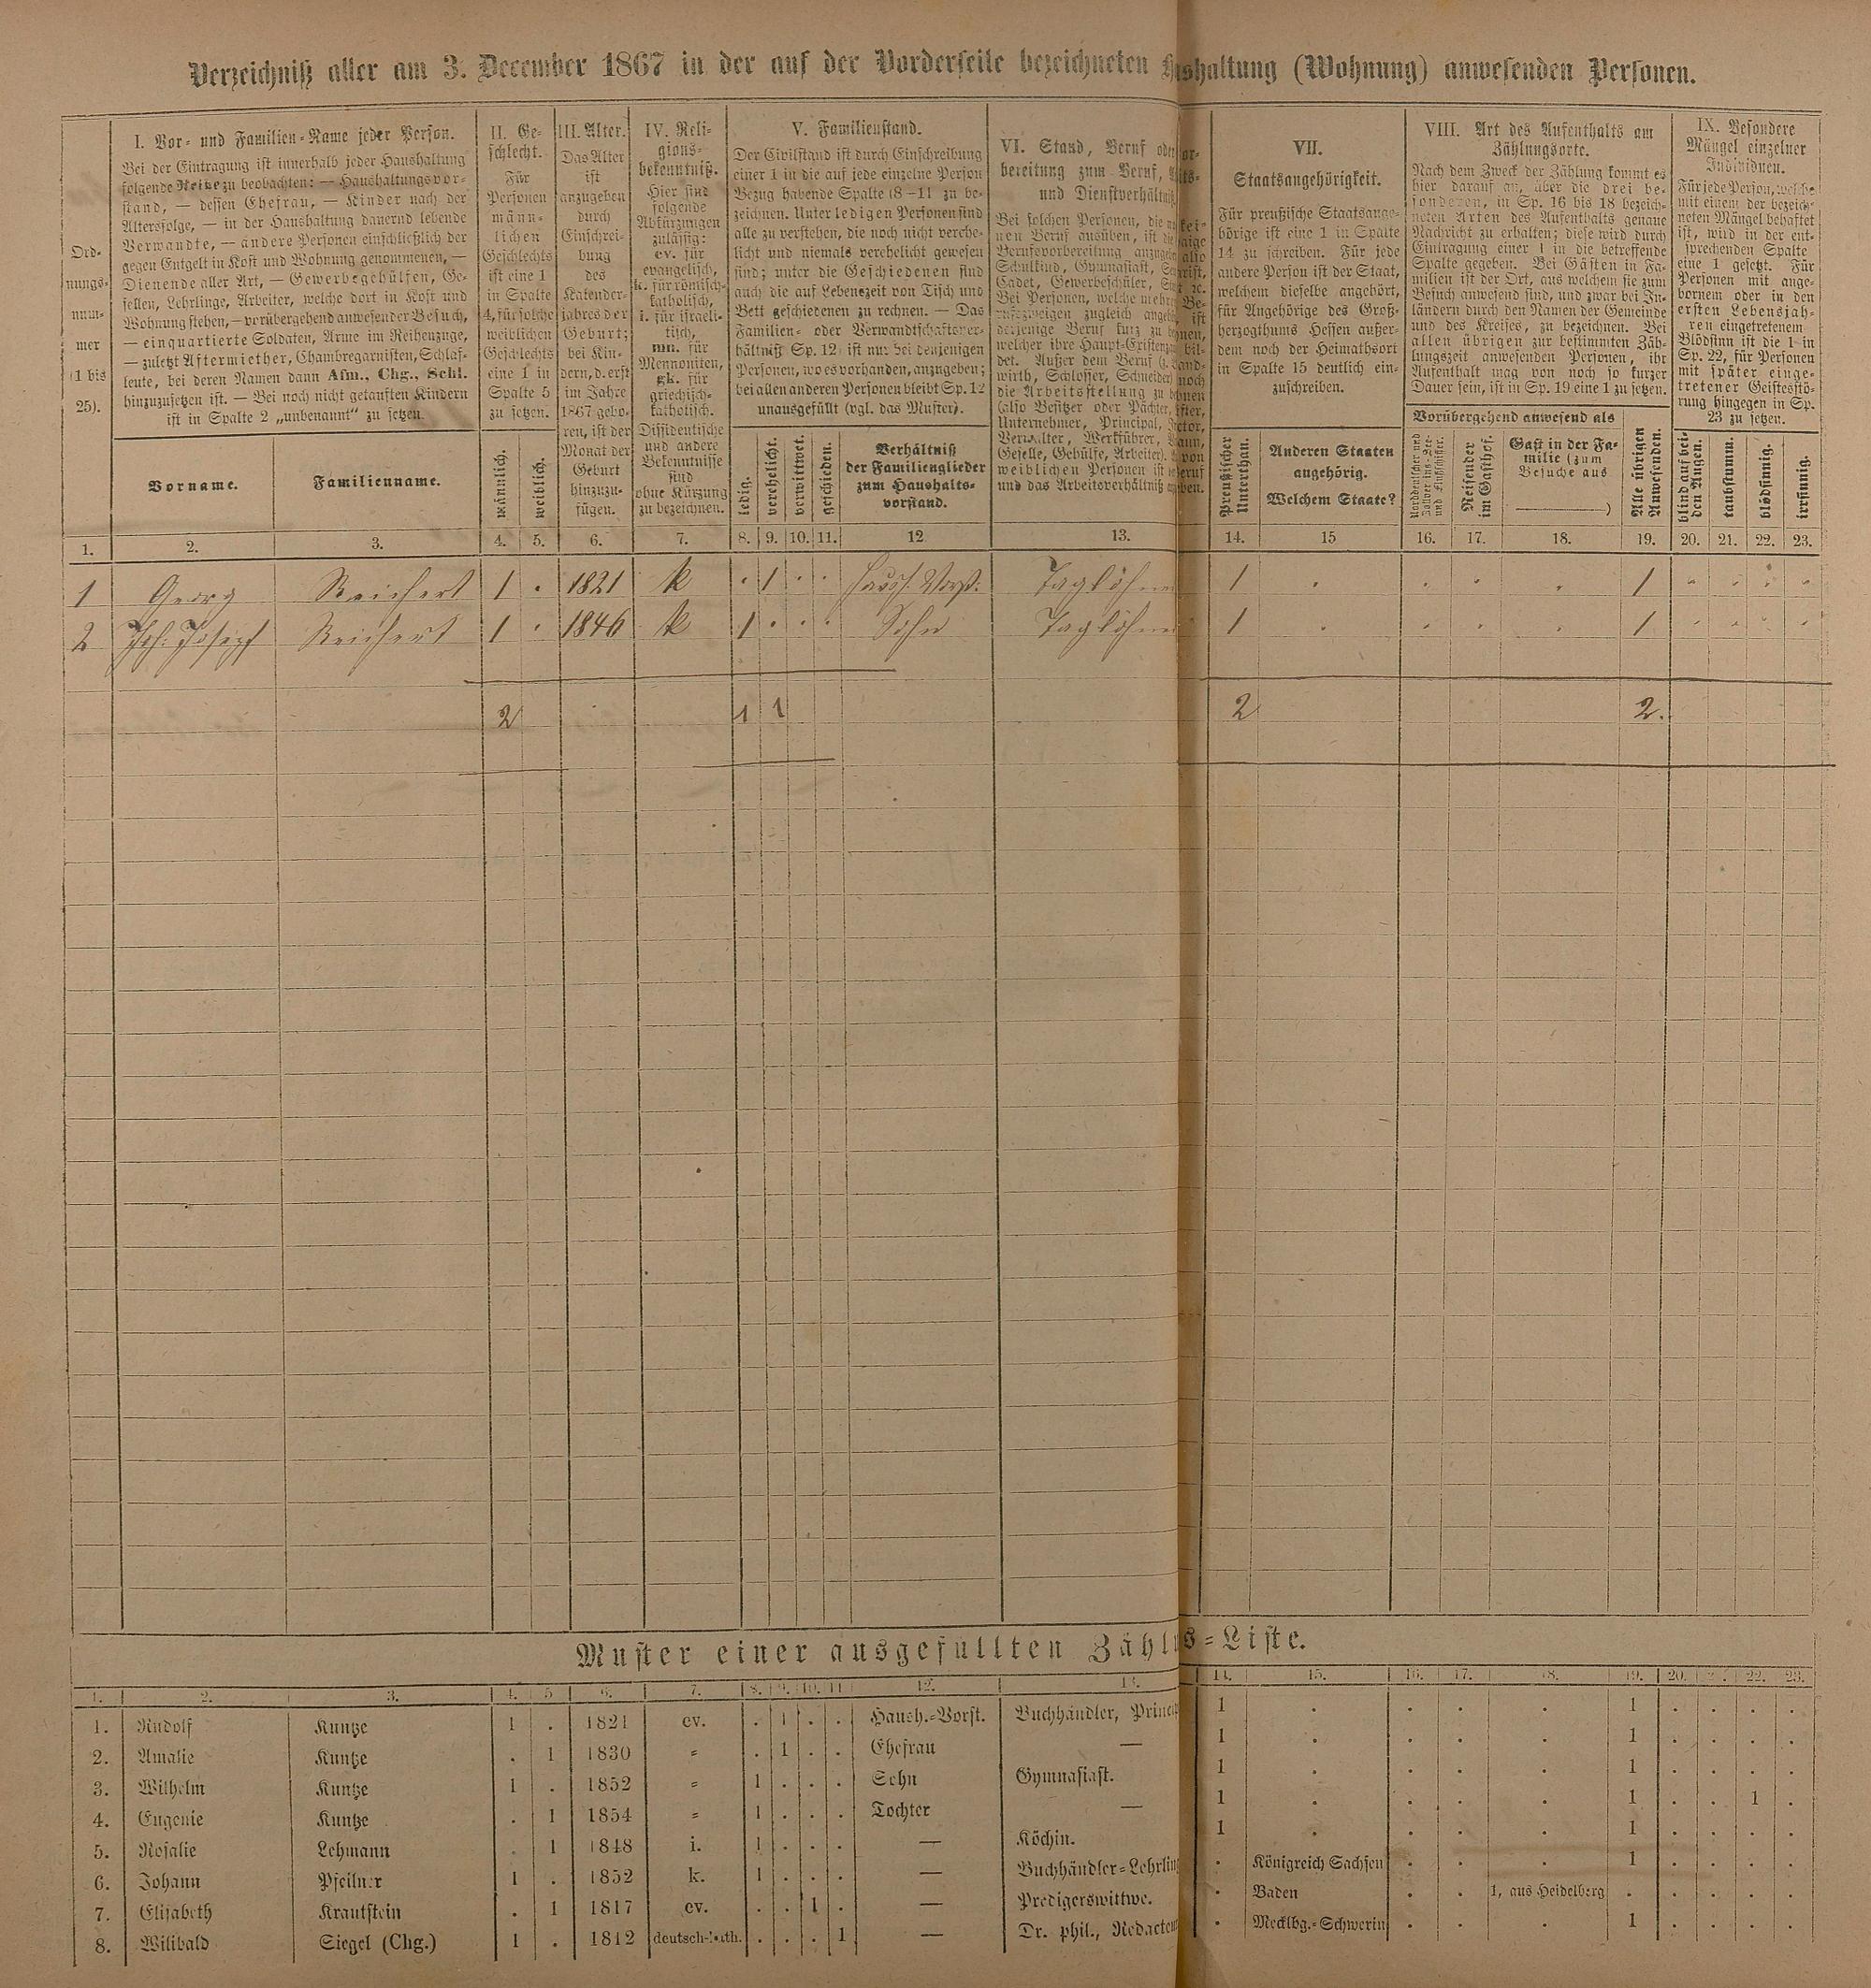 Verzeichniß aller am 3. December 1867 in der auf der Vorderseite bezeichneten haltung (Wohnung) anwesenden Personen.
Ord-
nungs-
num-
mer
(1 bis
25).
I. Vor- und Familien-Name jeder Person.
Bei der Eintragung ist innerhalb jeder Haushaltung
folgende Reihe zu beobachten: — Haushaltungsvor-
stand, — dessen Ehefrau, — Kinder nach der
Altersfolge, — in der Haushaltung dauernd lebende
Verwandte, — andere Personen einschließlich der
gegen Entgelt in Kost und Wohnung genommenen, —
Dienende aller Art, — Gewerbegehülfen, Ge-
sellen, Lehrlinge, Arbeiter, welche dort in Kost und
Wohnung stehen, — vorübergehend anwesender Besuch,
— einquartierte Soldaten, Arme im Reihenzuge,
— zuletzt Aftermiether, Chambregarnisten, Schlaf-
leute, bei deren Namen dann Afm., Chg., Schl.
hinzuzusetzen ist. — Bei noch nicht getauften Kindern
ist in Spalte 2 „unbenannt“ zu setzen.
Vorname.
Familienname.
II. Ge-
schlecht.
Für
Personen
männ-
lichen
Geschlechts
ist eine 1
in Spalte
4, für solche
weiblichen
Geschlechts
eine 1 in
Spalte 5
zu setzen.
männlich.
weiblich.
III. Alter.
Das Alter
ist
anzugeben
durch
Einschrei-
bung
des
Kalender-
jahres der
Geburt;
bei Kin-
dern, d. erst
im Jahre
1867 gebo-
ren, ist der
Monat der
Geburt
hinzuzu-
fügen.
IV. Reli-
gions-
bekenntniß.
Hier sind
folgende
Abkürzungen
zulässig:
ev. für
evangelisch,
k. für römisch-
katholisch,
i. für israeli-
tisch,
mn. für
Mennoniten,
gk. für
griechisch-
katholisch.
Dissidentische
und andere
Bekenntnisse
sind
ohne Kürzung
zu bezeichnen.
V. Familienstand.
Der Civilstand ist durch Einschreibung
einer 1 in die auf jede einzelne Person
Bezug habende Spalte (8–11) zu be-
zeichnen. Unter ledigen Personen sind
alle zu verstehen, die noch nicht verehe-
licht und niemals verehelicht gewesen
sind; unter die Geschiedenen sind
auch die auf Lebenszeit von Tisch und
Bett geschiedenen zu rechnen. — Das
Familien- oder Verwandtschaftsver-
hältniß Sp. 12 ist nur bei denjenigen
Personen, wo es vorhanden, anzugeben;
bei allen anderen Personen bleibt Sp. 12
unausgefüllt (vgl. das Muster).
ledig.
verehelicht.
verwittwet.
geschieden.
Verhältniß
der Familienglieder
zum Haushalts-
vorstand.
VI. Stand, Beruf oder
bereitung zum Beruf,
und Dienstverhältniß
Bei solchen Personen, die
nen Beruf ausüben, ist die
Berufsvorbereitung anzugeben
Schulkind, Gymnasiast,
Cadet, Gewerbeschüler,
Bei Personen, welche mehre
zugleich angehören
derjenige Beruf kurz zu
welcher ihre Haupt-Existenz
det. Außer dem Beruf
wirth, Schlosser, Schneider)
die Arbeitsstellung zu
(also Besitzer oder Pächter,
Unternehmer, Principal,
Verwalter, Werkführer,
Geselle, Gehülfe, Arbeiter).
weiblichen Personen ist
und das Arbeitsverhältniß
VII.
Staatsangehörigkeit.
Für preußische Staatsange-
hörige ist eine 1 in Spalte
14 zu schreiben. Für jede
andere Person ist der Staat,
welchem dieselbe angehört,
für Angehörige des Groß-
herzogthums Hessen außer-
dem noch der Heimathsort
in Spalte 15 deutlich ein-
zuschreiben.
Preußischer
Unterthan.
Anderen Staaten
angehörig.
Welchem Staate?
VIII. Art des Aufenthalts am
Zählungsorte.
Nach dem Zweck der Zählung kommt es
hier darauf an, über die drei be-
sonderen, in Sp. 16 bis 18 bezeich-
neten Arten des Aufenthalts genaue
Nachricht zu erhalten; diese wird durch
Eintragung einer 1 in die betreffende
Spalte gegeben. Bei Gästen in Fa-
milien ist der Ort, aus welchem sie zum
Besuch anwesend sind, und zwar bei In-
ländern durch den Namen der Gemeinde
und des Kreises, zu bezeichnen. Bei
allen übrigen zur bestimmten Zäh-
lungszeit anwesenden Personen, ihr
Aufenthalt mag von noch so kurzer
Dauer sein, ist in Sp. 19 eine 1 zu setzen.
Vorübergehend anwesend als
Reisender
im Gasthof.
Gast in der Fa-
milie (zum
Besuche aus
)
Alle übrigen
Anwesenden.
IX. Besondere
Mängel einzelner
Individuen.
Für jede Person, welche
mit einem der bezeich-
neten Mängel behaftet
ist, wird in der ent-
sprechenden Spalte
eine 1 gesetzt. Für
Personen mit ange-
bornem oder in den
ersten Lebensjah-
ren eingetretenem
Blödsinn ist die 1 in
Sp. 22, für Personen
mit später einge-
tretener Geistesstö-
rung hingegen in Sp.
23 zu setzen.
blind auf bei-
den Augen.
taubstumm.
blödsinnig.
irrsinnig.
1. 2. 3. 4. 5. 6. 7. 8. 9. 10. 11. 12 13. 14. 15 16. 17. 18. 19. 20. 21. 22. 23.
1 Georg Reichert 1 . 1821 k . 1 . . Haush. Vorst. Taglöhn 1 . . . . 1 . . . .
2 Joh. Joseph Reichert 1 . 1846 k 1 . . . Sohn Taglöhn 1 . . . . 1 . . . .
2 1 1 2 2.
Muster einer ausgefüllten Zähl s-Liste.
1. 2. 3. 4. 5 6. 7. 8. 9. 10. 11 12. 13. 14. 15. 16. 17. 18. 19. 20. 22. 23.
1. Rudolf Kuntze 1 . 1821 ev. . 1 . . Haush.-Vorst. Buchhändler, Princip 1 . . . . 1 . . . .
2. Amalie Kuntze . 1 1830 „ . 1 . . Ehefrau — 1 . . . . 1 . . . .
3. Wilhelm Kuntze 1 . 1852 „ 1 . . . Sohn Gymnasiast. 1 . . . . 1 . . . .
4. Eugenie Kuntze . 1 1854 „ 1 . . . Tochter — 1 . . . . 1 . . 1 .
5. Rosalie Lehmann . 1 1848 i. 1 . . . — Köchin. 1 . . . . 1 . . . .
6. Johann Pfeilner 1 . 1852 k. 1 . . . — Buchhändler-Lehrling . Königreich Sachsen . . . 1 . . . .
7. Elisabeth Krautstein . 1 1817 ev. . . 1 . — Predigerswittwe. . Baden . . 1, aus Heidelberg . . . . .
8. Wilibald Siegel (Chg.) 1 . 1812 deutsch-kath. . . . 1 — Dr. phil., Redacteur . Mecklbg.-Schwerin . . . 1 . . . .